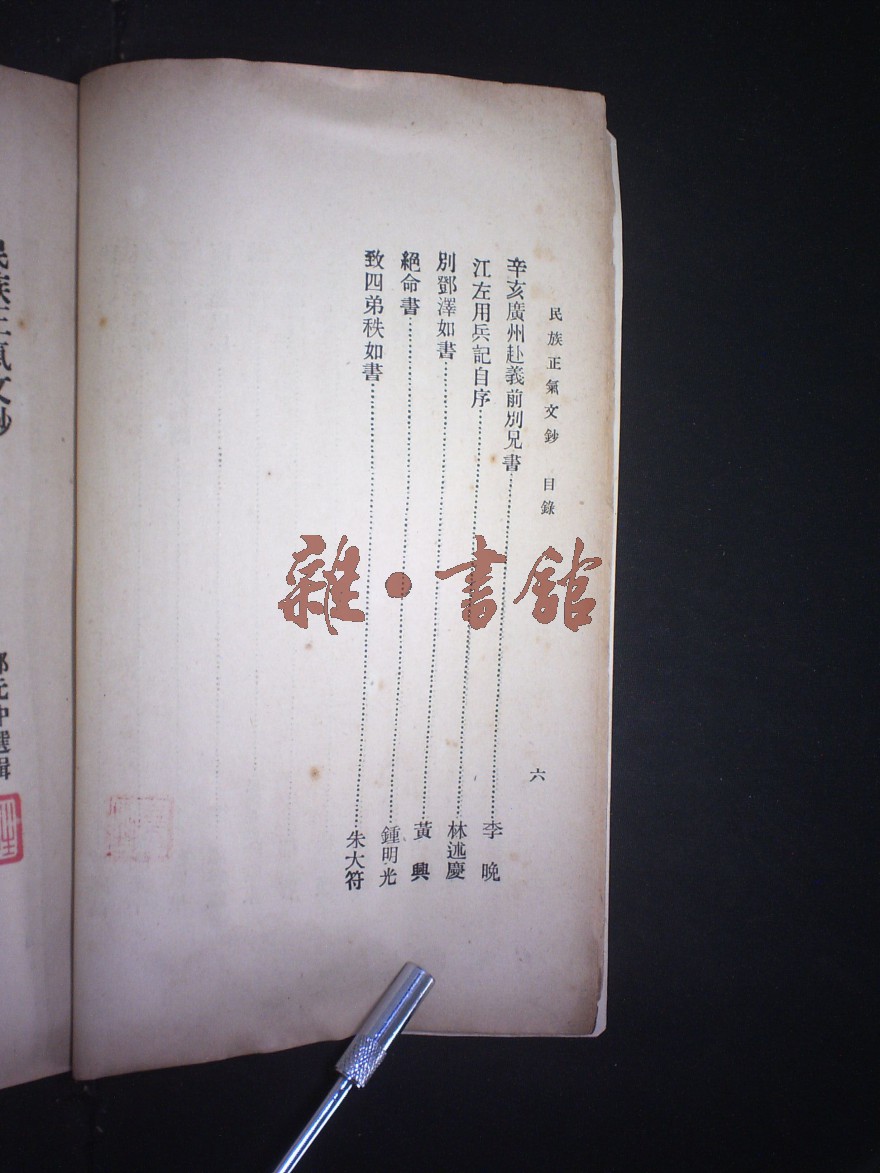 民族正氣文鈔 目錄 六
辛亥廣州赴義前別兄書 李晚
江左用兵記自序 林述慶
別鄧澤如書 黃興
絕命書 鍾明光
致四弟秩如書 朱大符
雜·書館
民族正氣文鈔
邵元冲選輯